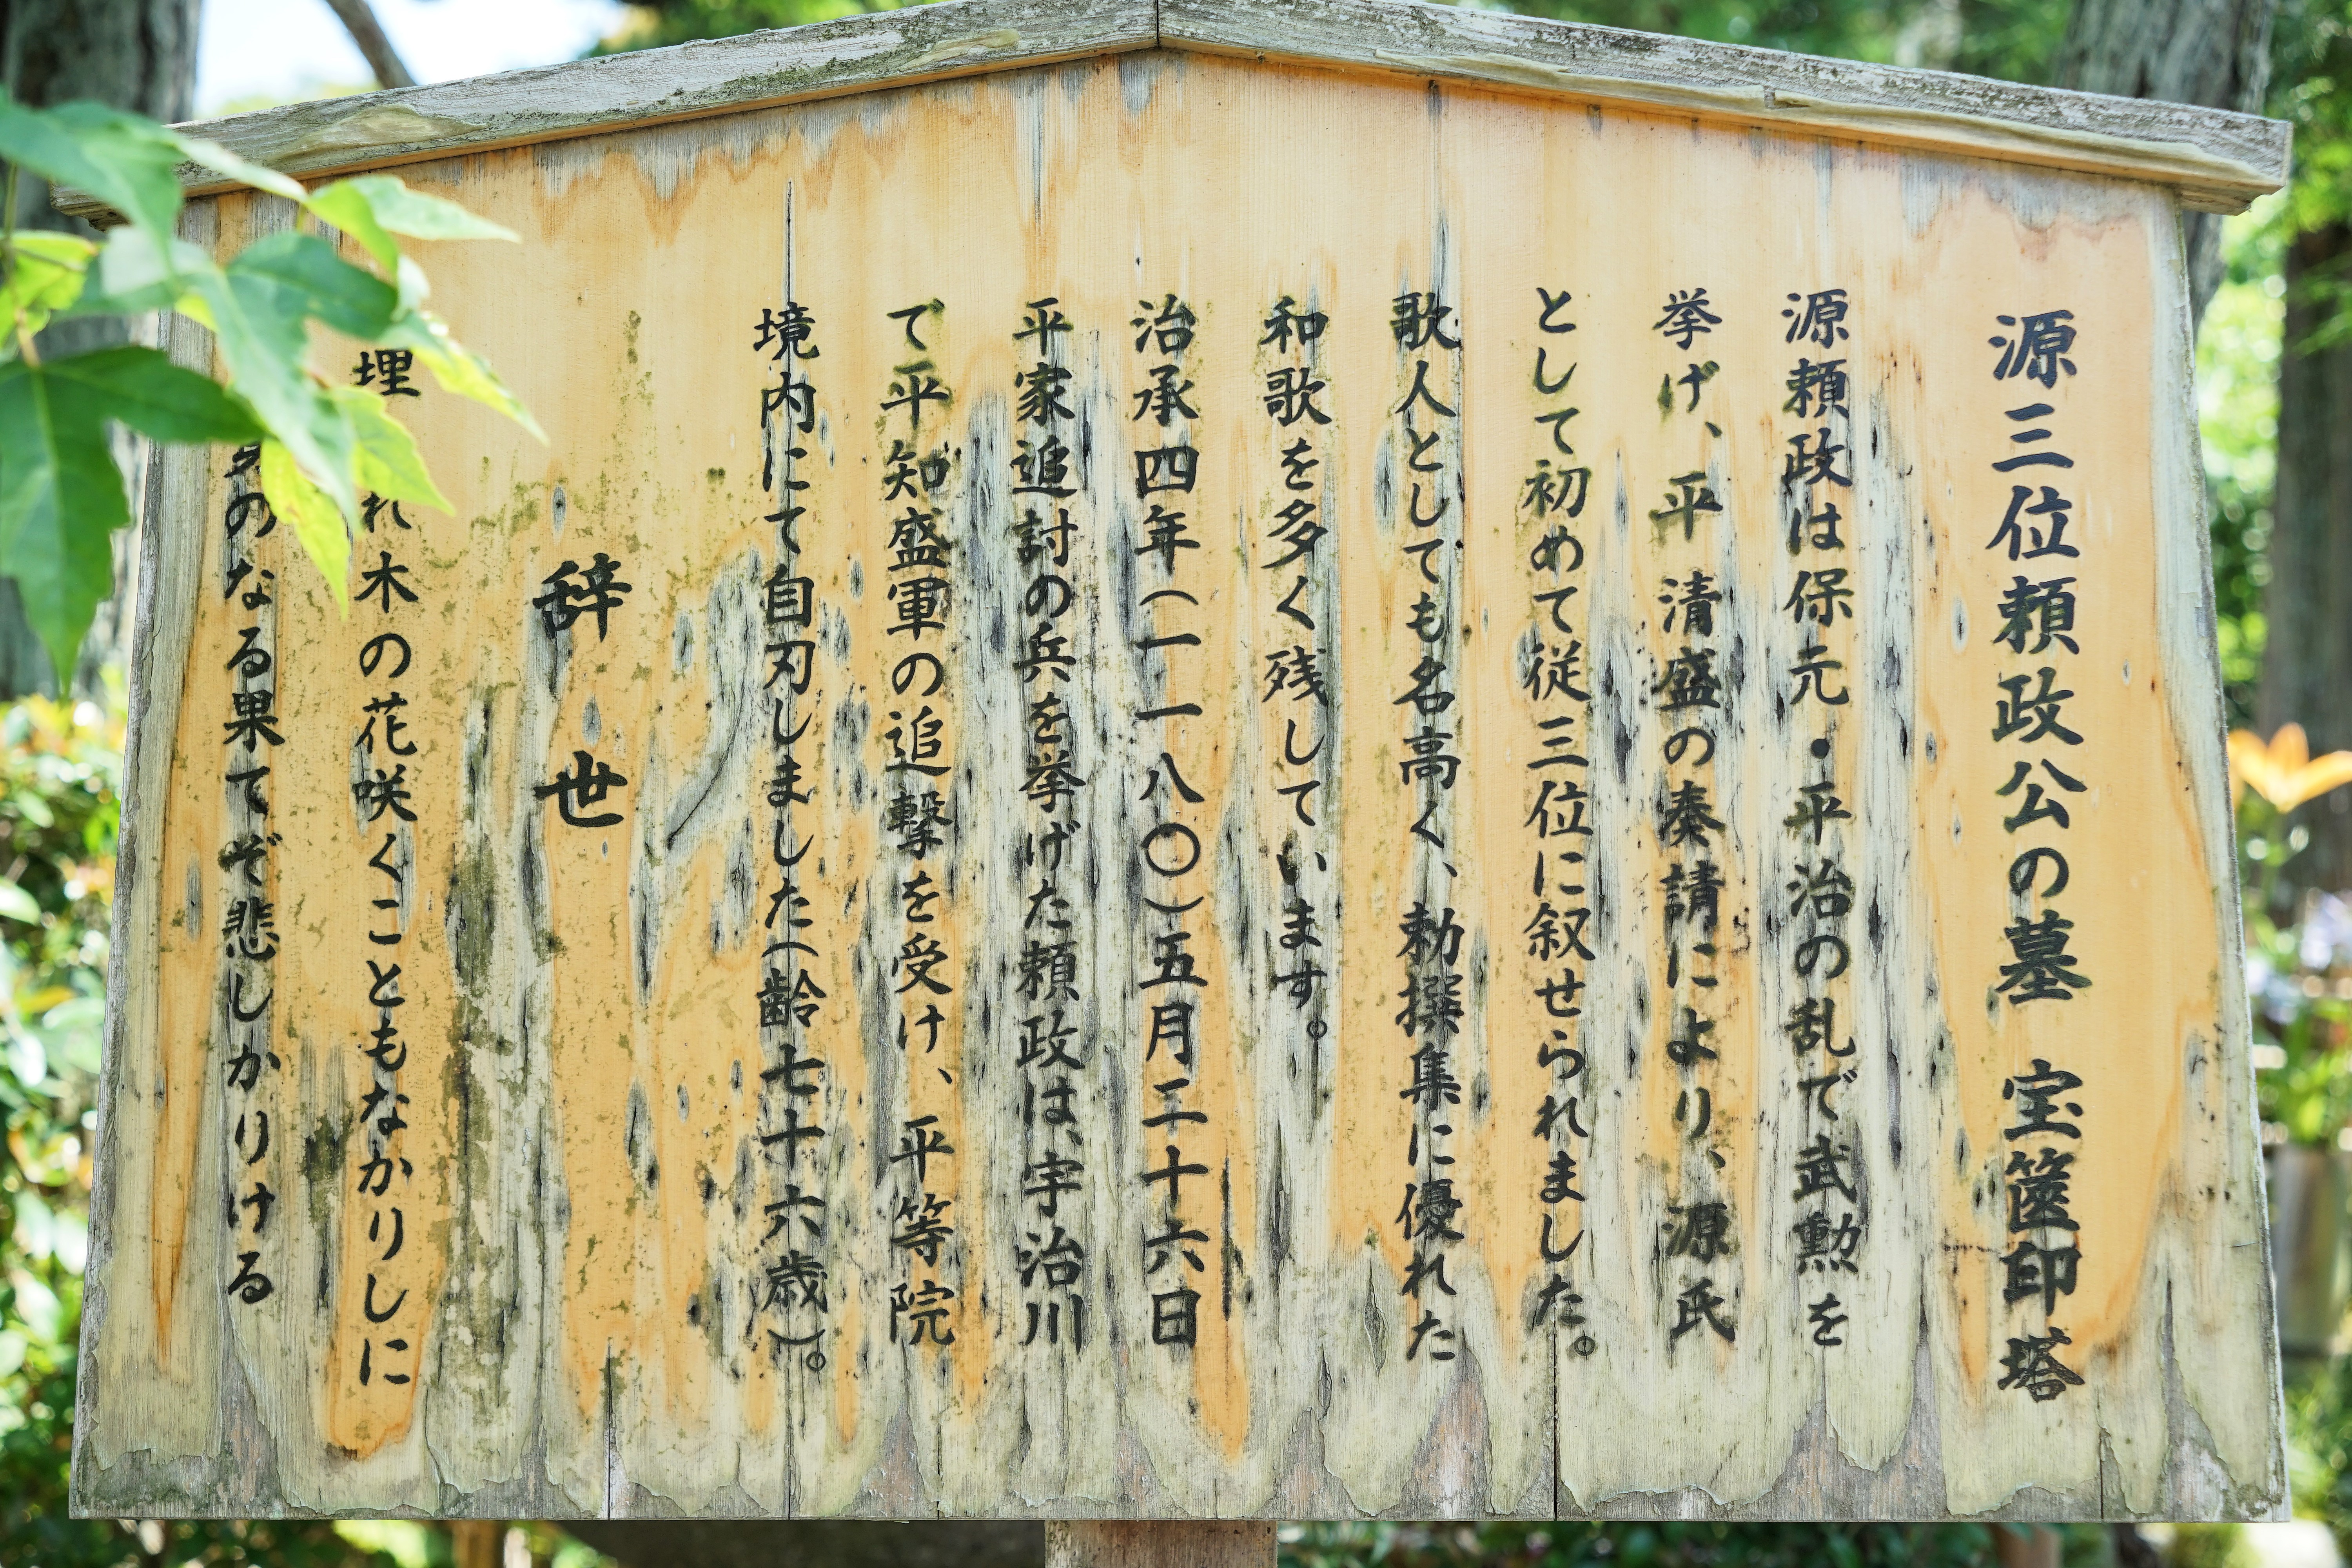 源三位頼政公の墓 宝篋印塔
源頼政は保元・平治の乱で武勲を
挙げ、平清盛の奏請により、源氏
として初めて従三位に叙せられました。
歌人としても名高く、勅撰集に優れた
和歌を多く残しています。
治承四年(一一八〇)五月二十六日
平家追討の兵を挙げた頼政は、宇治川
で平知盛軍の追撃を受け、平等院
境内にて自刃しました(齢七十六歳)。
辞世
埋れ木の花咲くこともなかりしに
身のなる果てぞ悲しかりける